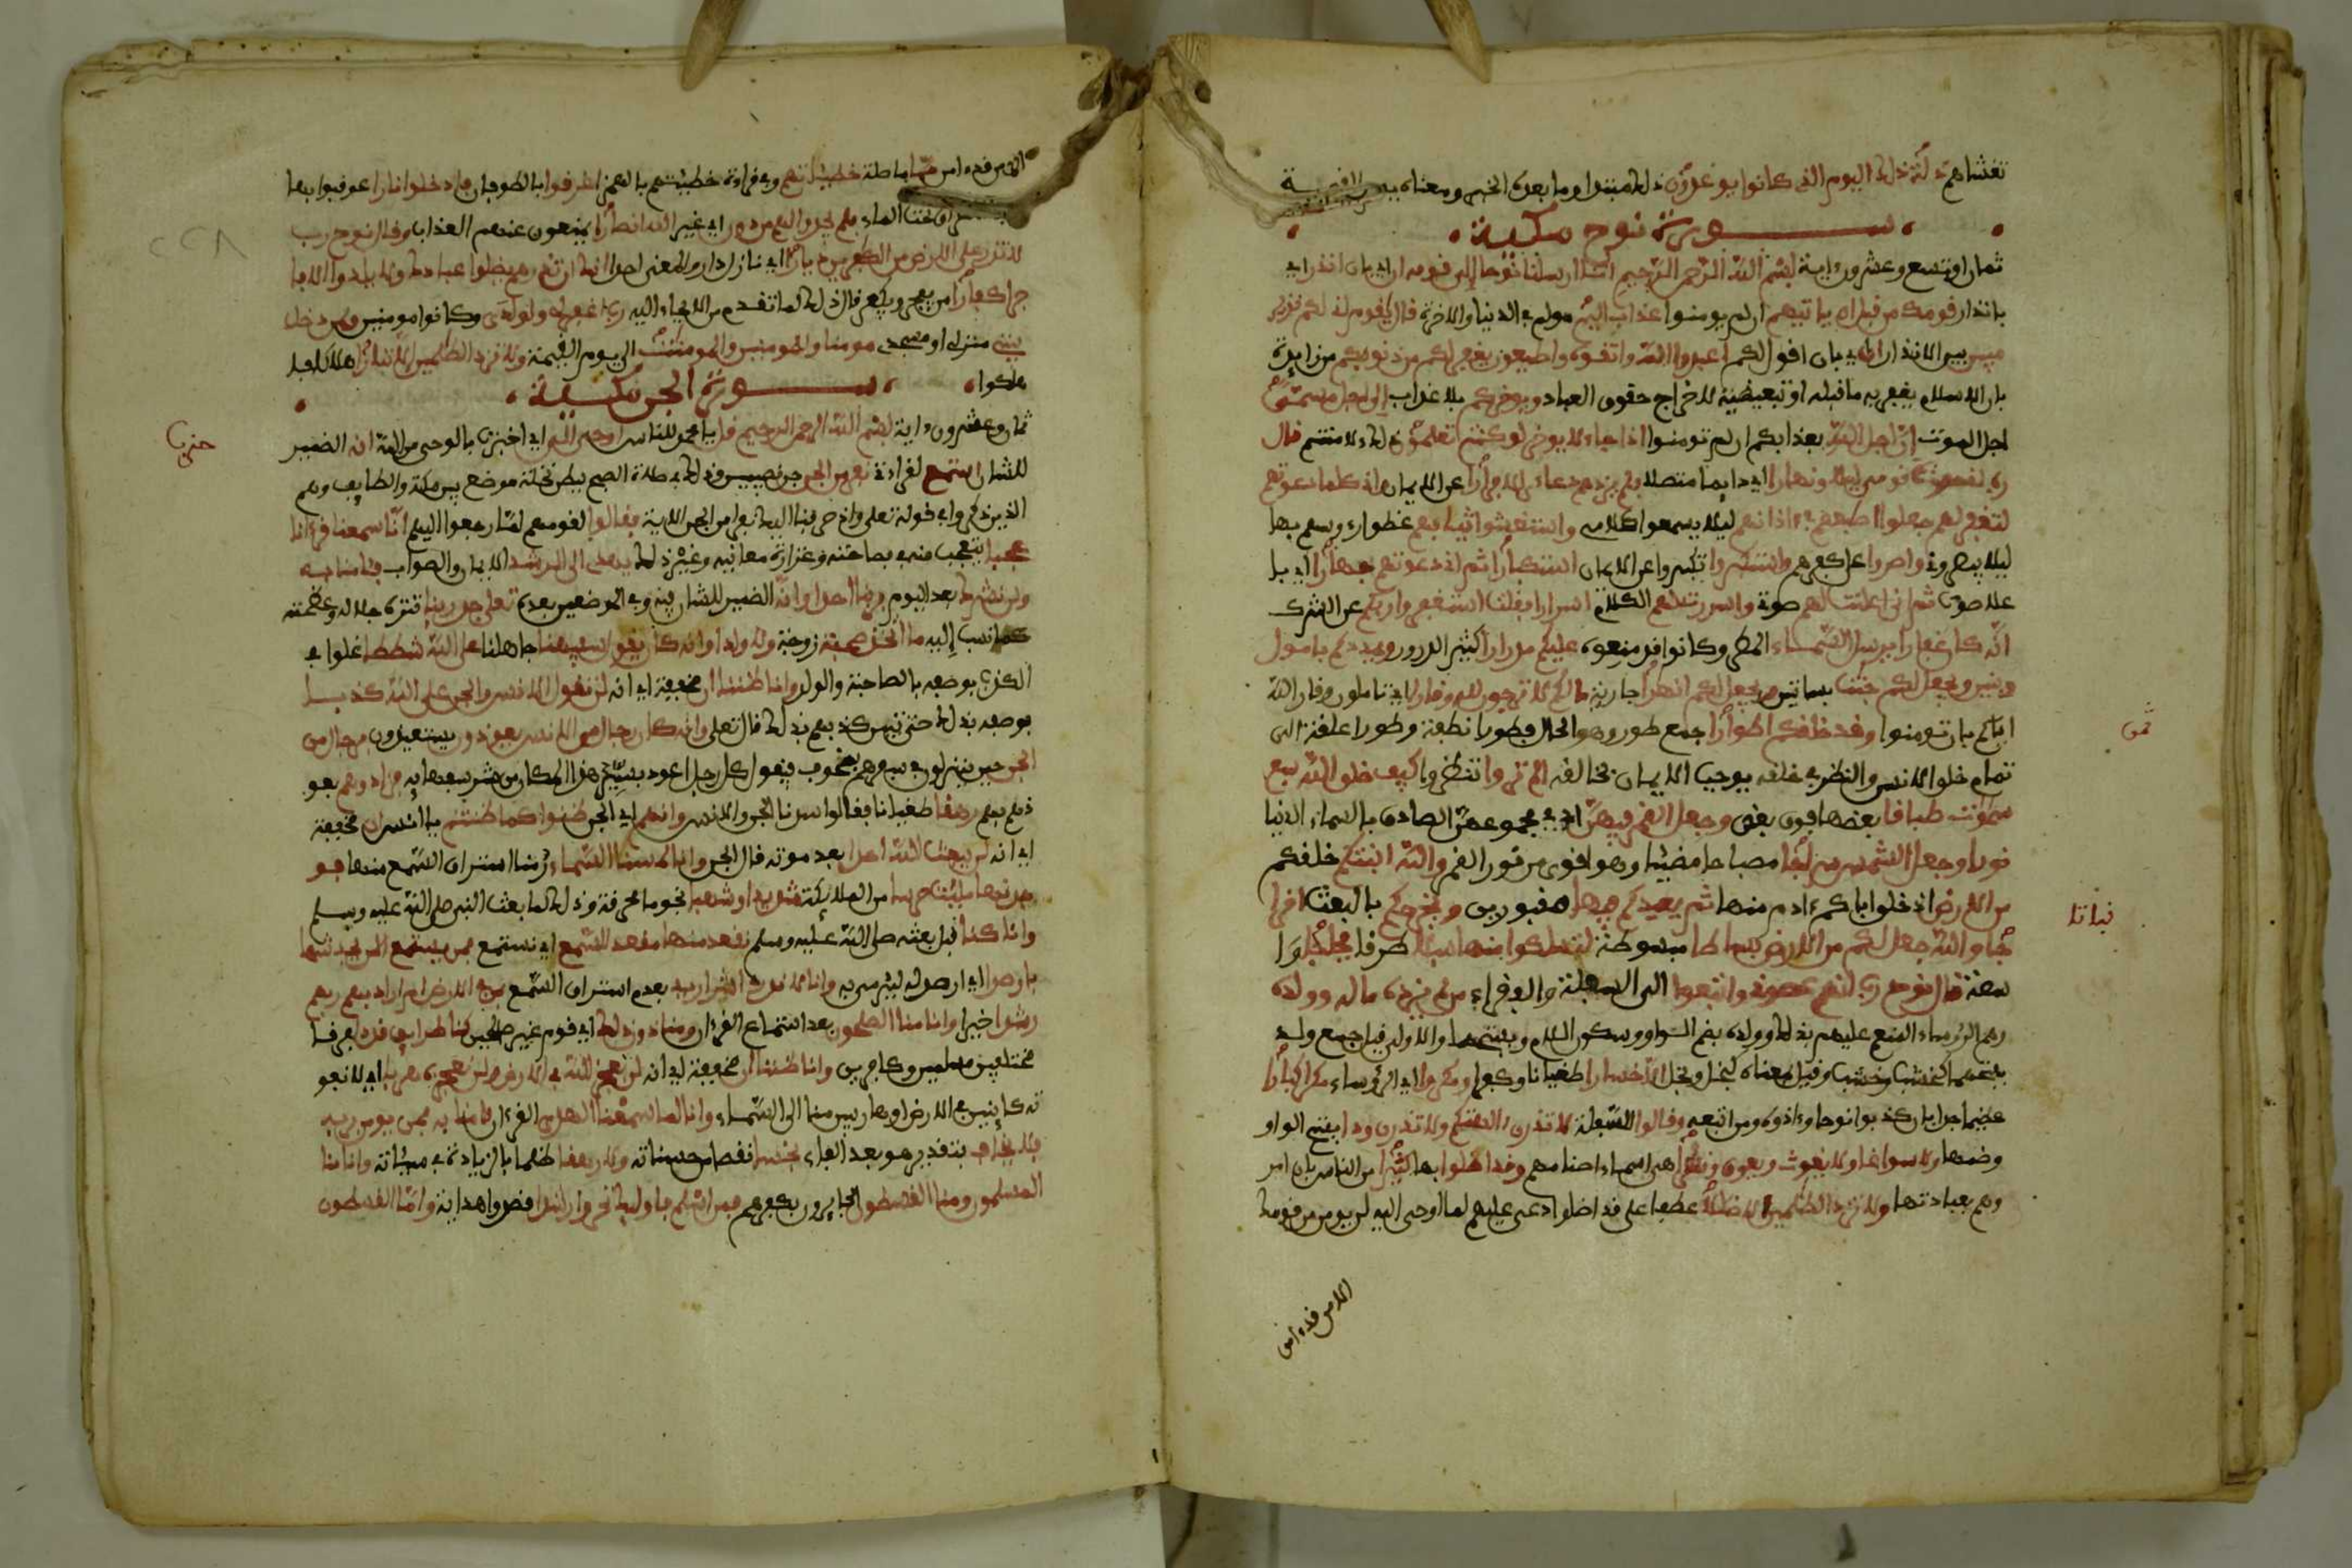 تغشاهم ذلة ذلك اليوم الذي كانوا يوعدون ذلك مبتدا وما بعده الخبر ومعناه يوم القيمة
سورة نوح مكية
ثمان او تسع وعشرون ءاية بسم الله الرحمن الرحيم انا ارسلنا نوحا الى قومه ان اي بان انذر اي
بانذار قومك من قبل ان ياتيهم ان لم يومنوا عذاب اليم مولم في الدنيا والاخرة قال يقوم اني لكم نذير
مبين بين الانذار ان اي بان اقول لكم اعبدوا الله واتقوه واطيعون يغفر لكم من ذنوبكم من زايدة
بان الاسلام يغفر به ما قبله او تبعيضية لاخراج حقوق العباد ويوخركم بلا عذاب الى اجل مسمى
اجل الموت ان اجل الله بعذابكم ان لم تومنوا اذا جاء لا يوخر لو كنتم تعلمون ذلك لامنتم قال
رب اني دعوت قومي ليلا ونهارا اي دايما متصلا فلم يزدهم دعاءي الا فرارا عن الايمان واني كلما دعوتهم
لتغفر لهم جعلوا اصبعهم في ءاذانهم ليلا يسمعوا كلامي واستغشوا ثيابهم غطوا رءوسهم بها
ليلا يبصروني واصروا على كفرهم واستكبروا تكبروا عن الايمان استكبارا ثم اني دعوتهم جهارا اي با
علا صوتي ثم اني اعلنت لهم صوتي واسررت لهم الكلام اسرارا فقلت استغفروا ربكم من الشرك
انه كان غفارا يرسل السماء المطر وكانوا قد منعوه عليكم مدرارا كثير الدرور ويمددكم باموال
وبنين ويجعل لكم جنت بساتين ويجعل لكم انهرا جارية ما لكم لا ترجون لله وقارا اي تاملون وقار الله
اياكم بان تومنوا وقد خلقكم اطوارا جمع طور وهو الحال فطورا نطفة وطورا علقة الى
ثمن
تمام خلق الانسن والنظر في خلقه يوجب الايمان بخالقه الم تروا تنظروا كيف خلق الله سبع
سموت طباقا بعضها فوق بعض وجعل القمر فيهن اي في مجموعهن الصادق بالسماء الدنيا
نورا وجعل الشمس سراجا مصباحا مضيئا وهو اقوى من نور القمر والله انبتكم خلقكم
من الارض اذ خلق اباكم ءادم منها ثم يعيدكم فيها مقبورين ويخرجكم بالبعث اخرا
نباتا
جا والله جعل لكم من الارض بساطا مبسوطة لتسلكوا منها سبلا طرقا فجاجا وا
سعة قال نوح رب انهم عصوني واتبعوا اي السفلة والفقراء من لم يزده ماله وولده
وهم الرؤساء المنعم عليهم بذلك وولده بضم الواو وسكون اللام وبفتحهما والاول قيل جمع ولد
بفتحهما كخشب وخشب وقيل بمعناه كبخل وبخل الا خسارا طغيانا وكفرا ومكروا اي الرؤساء مكرا كبارا
عظيما جدا بان كذبوا نوحا وءاذوه ومن اتبعه وقالوا للسفلة لا تذرن ءالهتكم ولا تذرن ودا بفتح الواو
وضمها ولا سواعا ولا يغوث ويعوق ونسرا هي اسماء اصنامهم وقد اضلوا بها كثيرا من الناس بان امر
وهم بعبادتها ولا تزد الظلمين الا ضللا عطفا على قد اضلوا دعى عليهم لما اوحي اليه لن يومن من قومك
الا من قد ءامن
الا من قد ءامن مما ما صلة خطيئتهم وفي قراءة خطيئتهم بالهمز اغرقوا بالطوفان فادخلوا نارا عوقبوا بها
تحت الماء فلم يجدوا لهم من دون اي غير الله انصارا يمنعون عنهم العذاب وقال نوح رب
٢٢٨
لا تذر على الارض من الكفرين ديارا اي نازل دار والمعنى احدا انك ان تذرهم يضلوا عبادك ولا يلدوا الا فا
جرا كفارا من يفجر ويكفر قال ذلك لما تقدم من الايحاء اليه رب اغفر لي ولولدي وكانا مومنين ولمن دخل
بيتي منزلي او مسجدي مومنا وللمومنين والمومنت الى يوم القيمة ولا تزد الظلمين الا تبارا هلاكا فا
هلكوا سورة الجن مكية
ثمان وعشرون ءاية بسم الله الرحمن الرحيم قل يا محمد للناس اوحي الي اي اخبرت بالوحي من الله انه الضمير
حزب
للشان استمع لقراءتي نفر من الجن جن نصيبين وذلك في صلاة الصبح ببطن نخلة موضع بين مكة والطايف وهم
الذين ذكروا في قوله تعلى واذ صرفنا اليك نفرا من الجن الاية فقالوا لقومهم لما رجعوا اليهم انا سمعنا قرءانا
عجبا يتعجب منه في فصاحته وغزارة معانيه وغير ذلك يهدي الى الرشد الايمان والصواب فئامنا به
ولن نشرك بعد اليوم بربنا احدا وانه الضمير للشان فيه وفي الموضعين بعده تعلى جد ربنا تنزه جلاله وعظمته
عما نسب اليه ما اتخذ صحبة زوجة ولا ولدا وانه كان يقول سفيهنا جاهلنا على الله شططا غلوا في
الكذب بوصفه بالصاحبة والولد وانا ظننا ان مخففة اي انه لن تقول الانس والجن على الله كذبا
بوصفه بذلك حتى تبين كذبهم بذلك قال تعلى وانه كان رجال من الانس يعوذون يستعيذون برجال من
الجن حين ينزلون في سفرهم بمخوف فيقول كل رجل اعوذ بسيد هذا المكان من شر سفهايه فزادوهم بعو
ذهم بهم رهقا طغيانا فقالوا سدنا الجن والانس وانهم اي الجن ظنوا كما ظننتم يا انس ان مخففة
اي انه لن يبعث الله احدا بعد موته قال الجن وانا لمسنا السماء رمنا استراق السمع منها فو
جدنها مليت حرسا من الملايكة شديدا وشهبا نجوما محرقة وذلك لما بعث النبي صلى الله عليه وسلم
وانا كنا قبل بعثه صلى الله عليه وسلم نقعد منها مقعد للسمع اي نستمع فمن يستمع الان يجد له شهابا
رصدا اي ارصد له ليرمى به وانا لا ندري اشر اريد بعدم استراق السمع بمن في الارض ام اراد بهم ربهم
رشدا خيرا وانا منا الصلحون بعد استماع القرءان ومنا دون ذلك اي قوم غير صلحين كنا طرايق قددا فرقا
مختلفين مسلمين وكافرين وانا ظننا ان مخففة اي انه لن نعجز الله في الارض ولن نعجزه هربا اي لا نفو
ته كاينين في الارض او هاربين منها الى السماء وانا لما سمعنا الهدى القرءان ءامنا به فمن يومن بربه
فلا يخاف بتقدير هو بعد الفاء بخسا نقصا من حسناته ولا رهقا ظلما بالزيادة في سيئاته وانا منا
المسلمون ومنا القسطون الجايرون بكفرهم فمن اسلم فاوليك تحروا رشدا قصدوا هداية واما القسطون